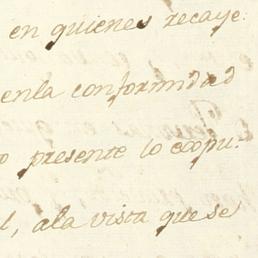 en quienes recaye:
enla conformidad
presente lo expu:
, ala vista que se